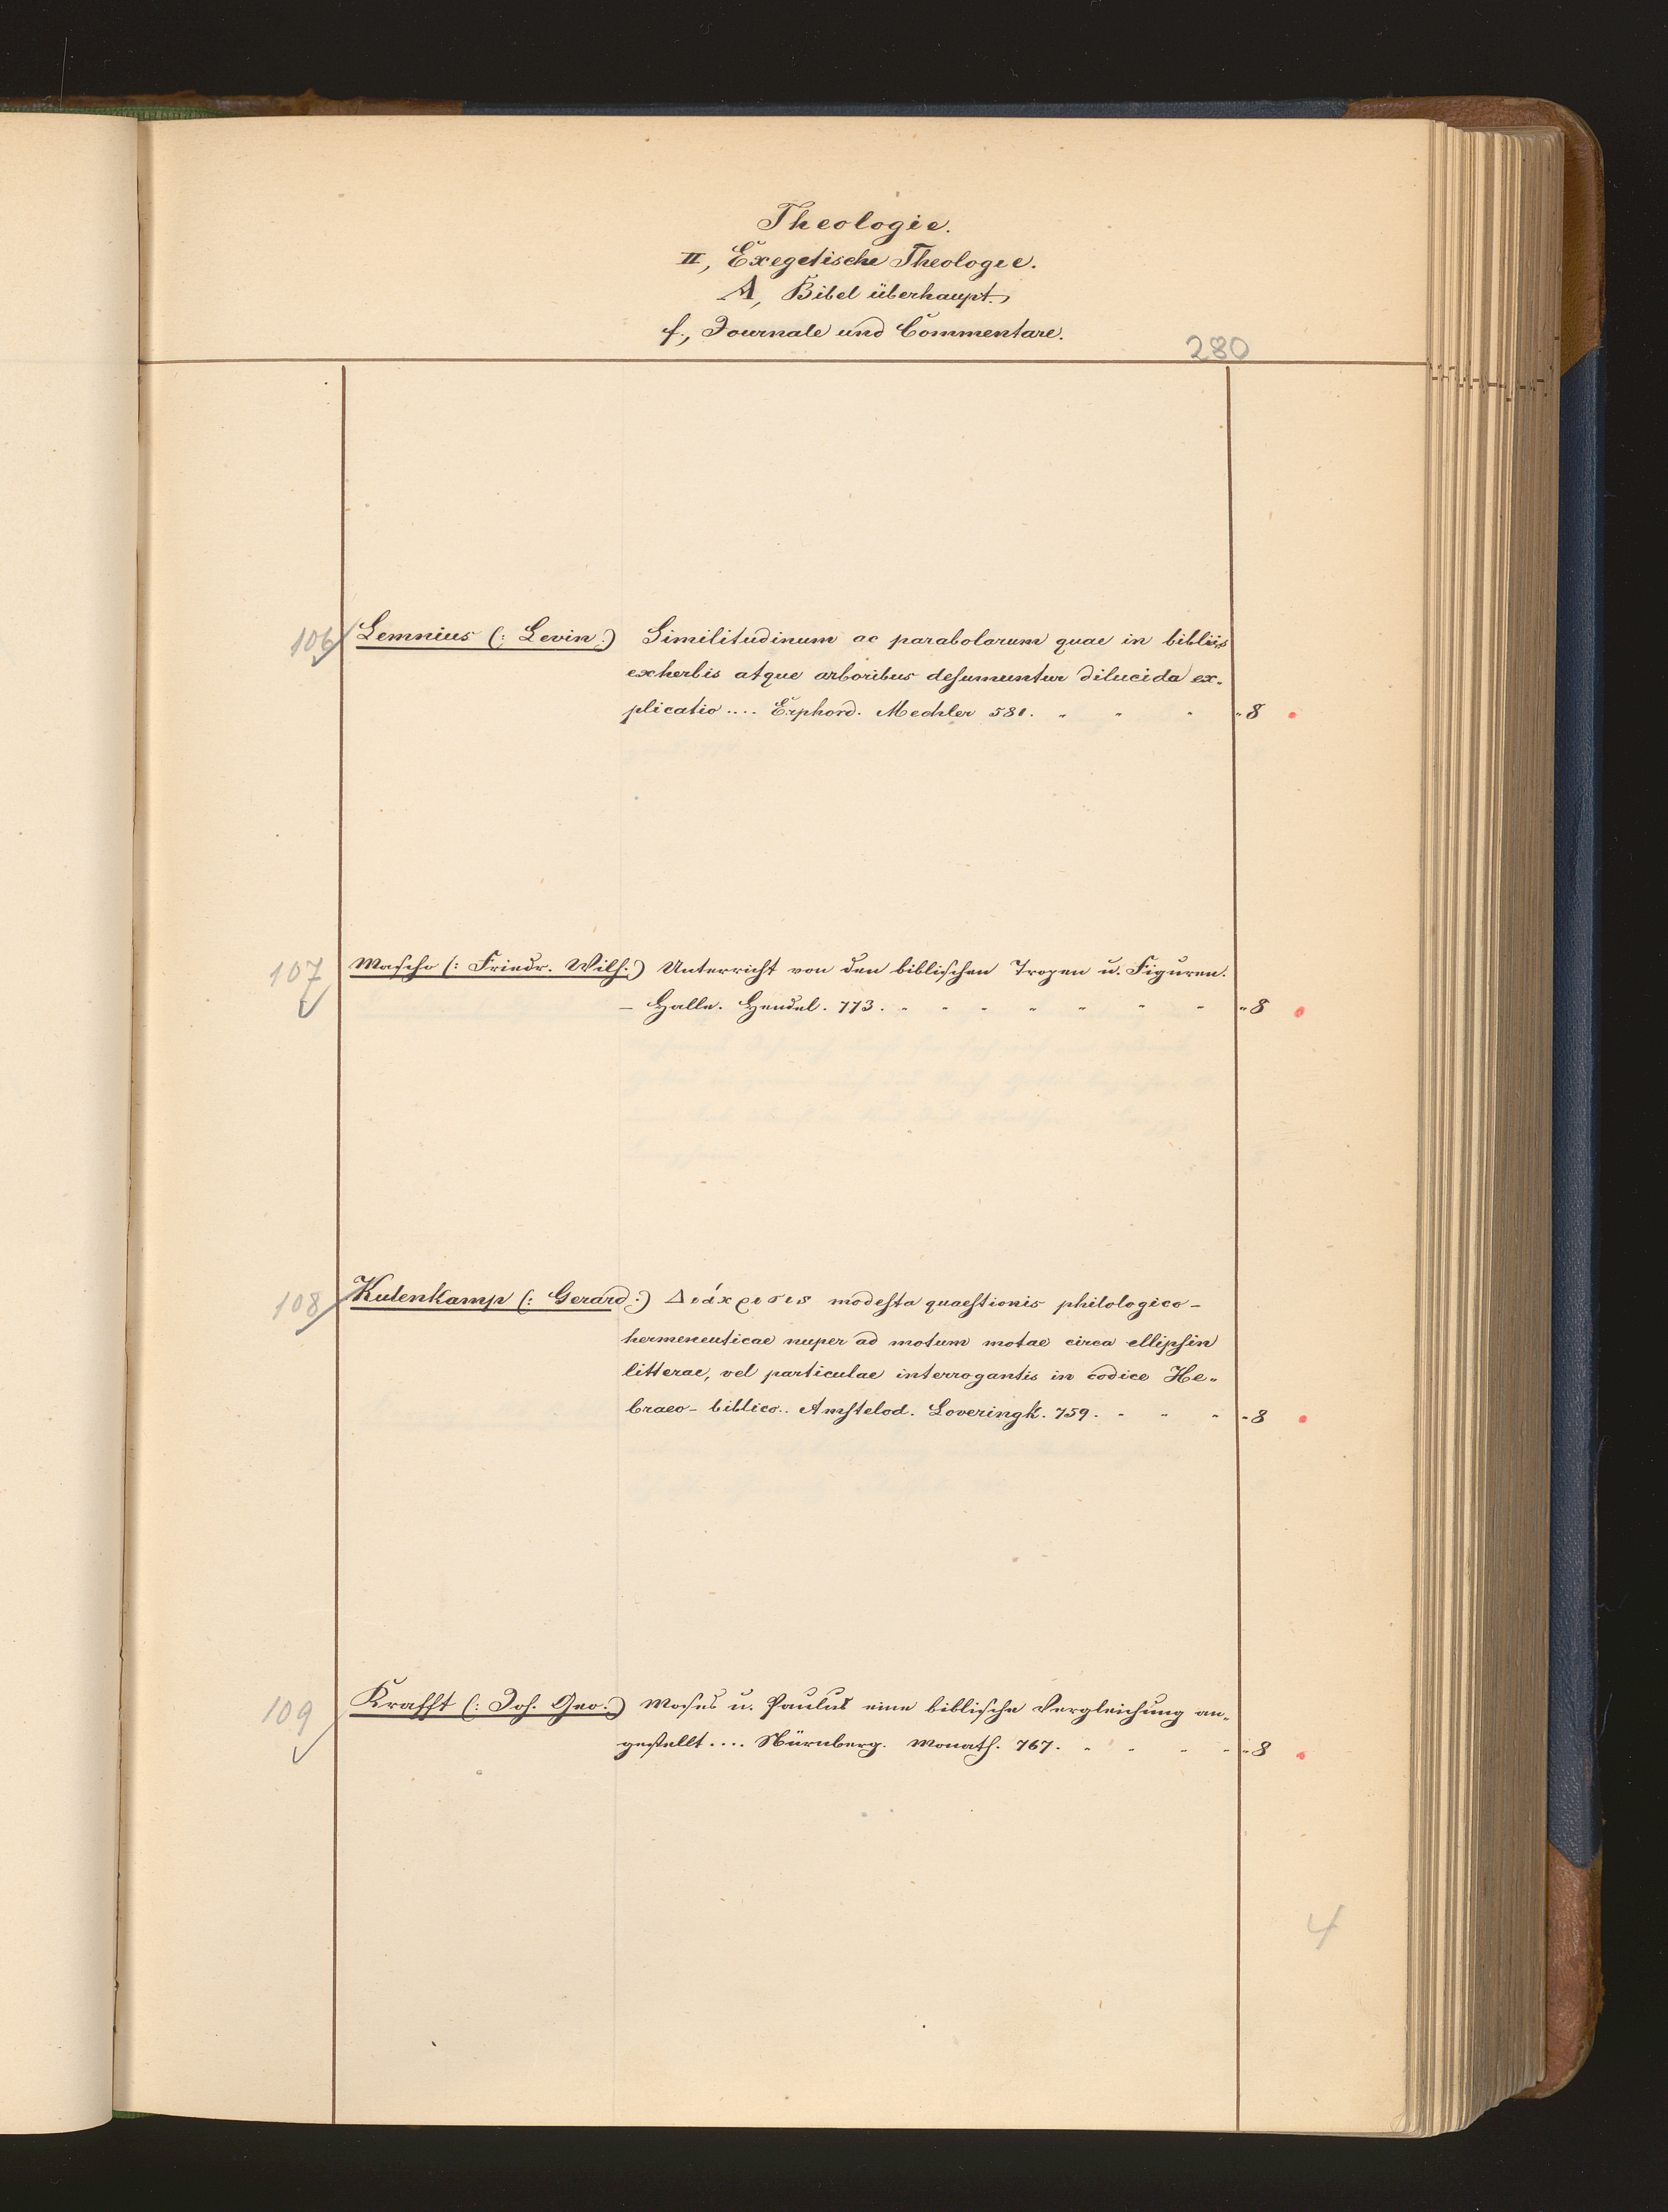 Theologie.
II, Exegetische Theologie.
A, Bibel überhaupt.
f, Journale und Commentare.
280
106 Lemnius (: Levin :) Similitudinum ac parabolarum quae in bibliis
exherbis atque arboribus desumuntur dilucida ex-
plicatio .... Erphord. Mechler 581. " " " " 8
107 Mascho (: Friedr. Wilh. :) Unterricht von den biblischen Tropen u. Figuren.
– Halle. Hendel. 773. " " " " " " " " 8
108 Kulenkamp (: Gerard :) Διάκρισις modesta quaestionis philologico-
hermeneuticae nuper ad motum motae circa ellipsin
litterae, vel particulae interrogantis in codice He-
braeo-biblico.. Amstelod. Loveringk. 759. " " " " 8
109 Krafft (: Joh. Geo. :) Moses u. Paulus eine biblische Vergleichung an-
gestellt .... Nürnberg. Monath. 767. " " " " " 8
4